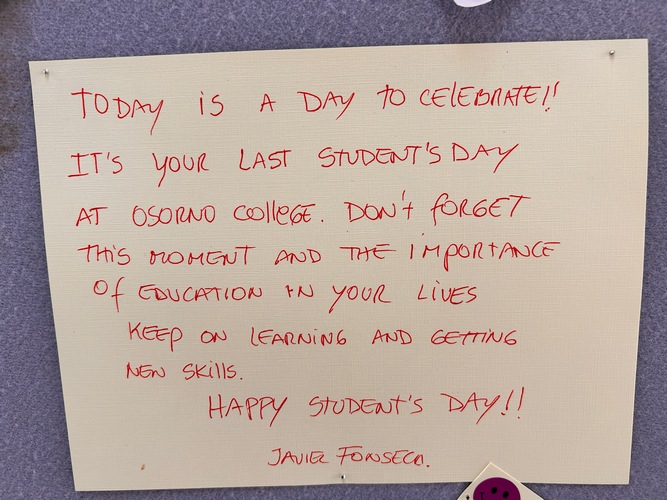 TODAY IS A DAY TO CELEBRATE!!
IT'S YOUR LAST STUDENT'S DAY
AT OSORNO COllEGE. DON't fORGET
tHIS MOMENT AND THE IMPORtANCE
Of EDUCATION IN YOUR LIVES
KEEP ON LEARNING AND GETTING
NEW SKills.
HAPPY STUDENT'S DAY!!
JAVIER FONSECA.